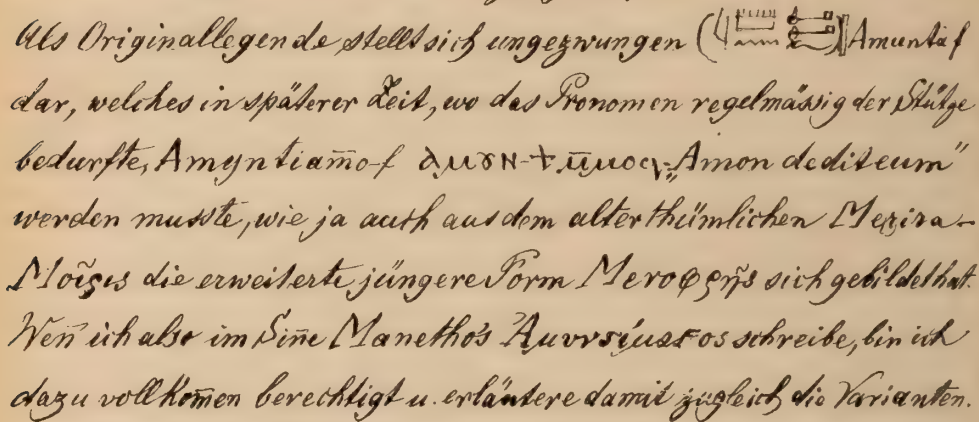 Als Originallegende stellt sich ungezwungen Amuntáf
dar, welches in späterer Zeit, wo das Pronomen regelmässig der Stütze
bedurfte, Amyntiam̄o-f ⲁⲙⲟⲩⲛ-ϯ ⲙ̄ⲙⲟϥ „Amon dedit eum"
werden musste, wie ja auch aus dem alterthümlichen Merira-
die erweiterte jüngere Form sich gebildet hat.
Wen̄ ich also im Sin̄e Manetho's schreibe, bin ich
dazu vollkom̄en berechtigt u. erläutere damit zugleich die Varianten.